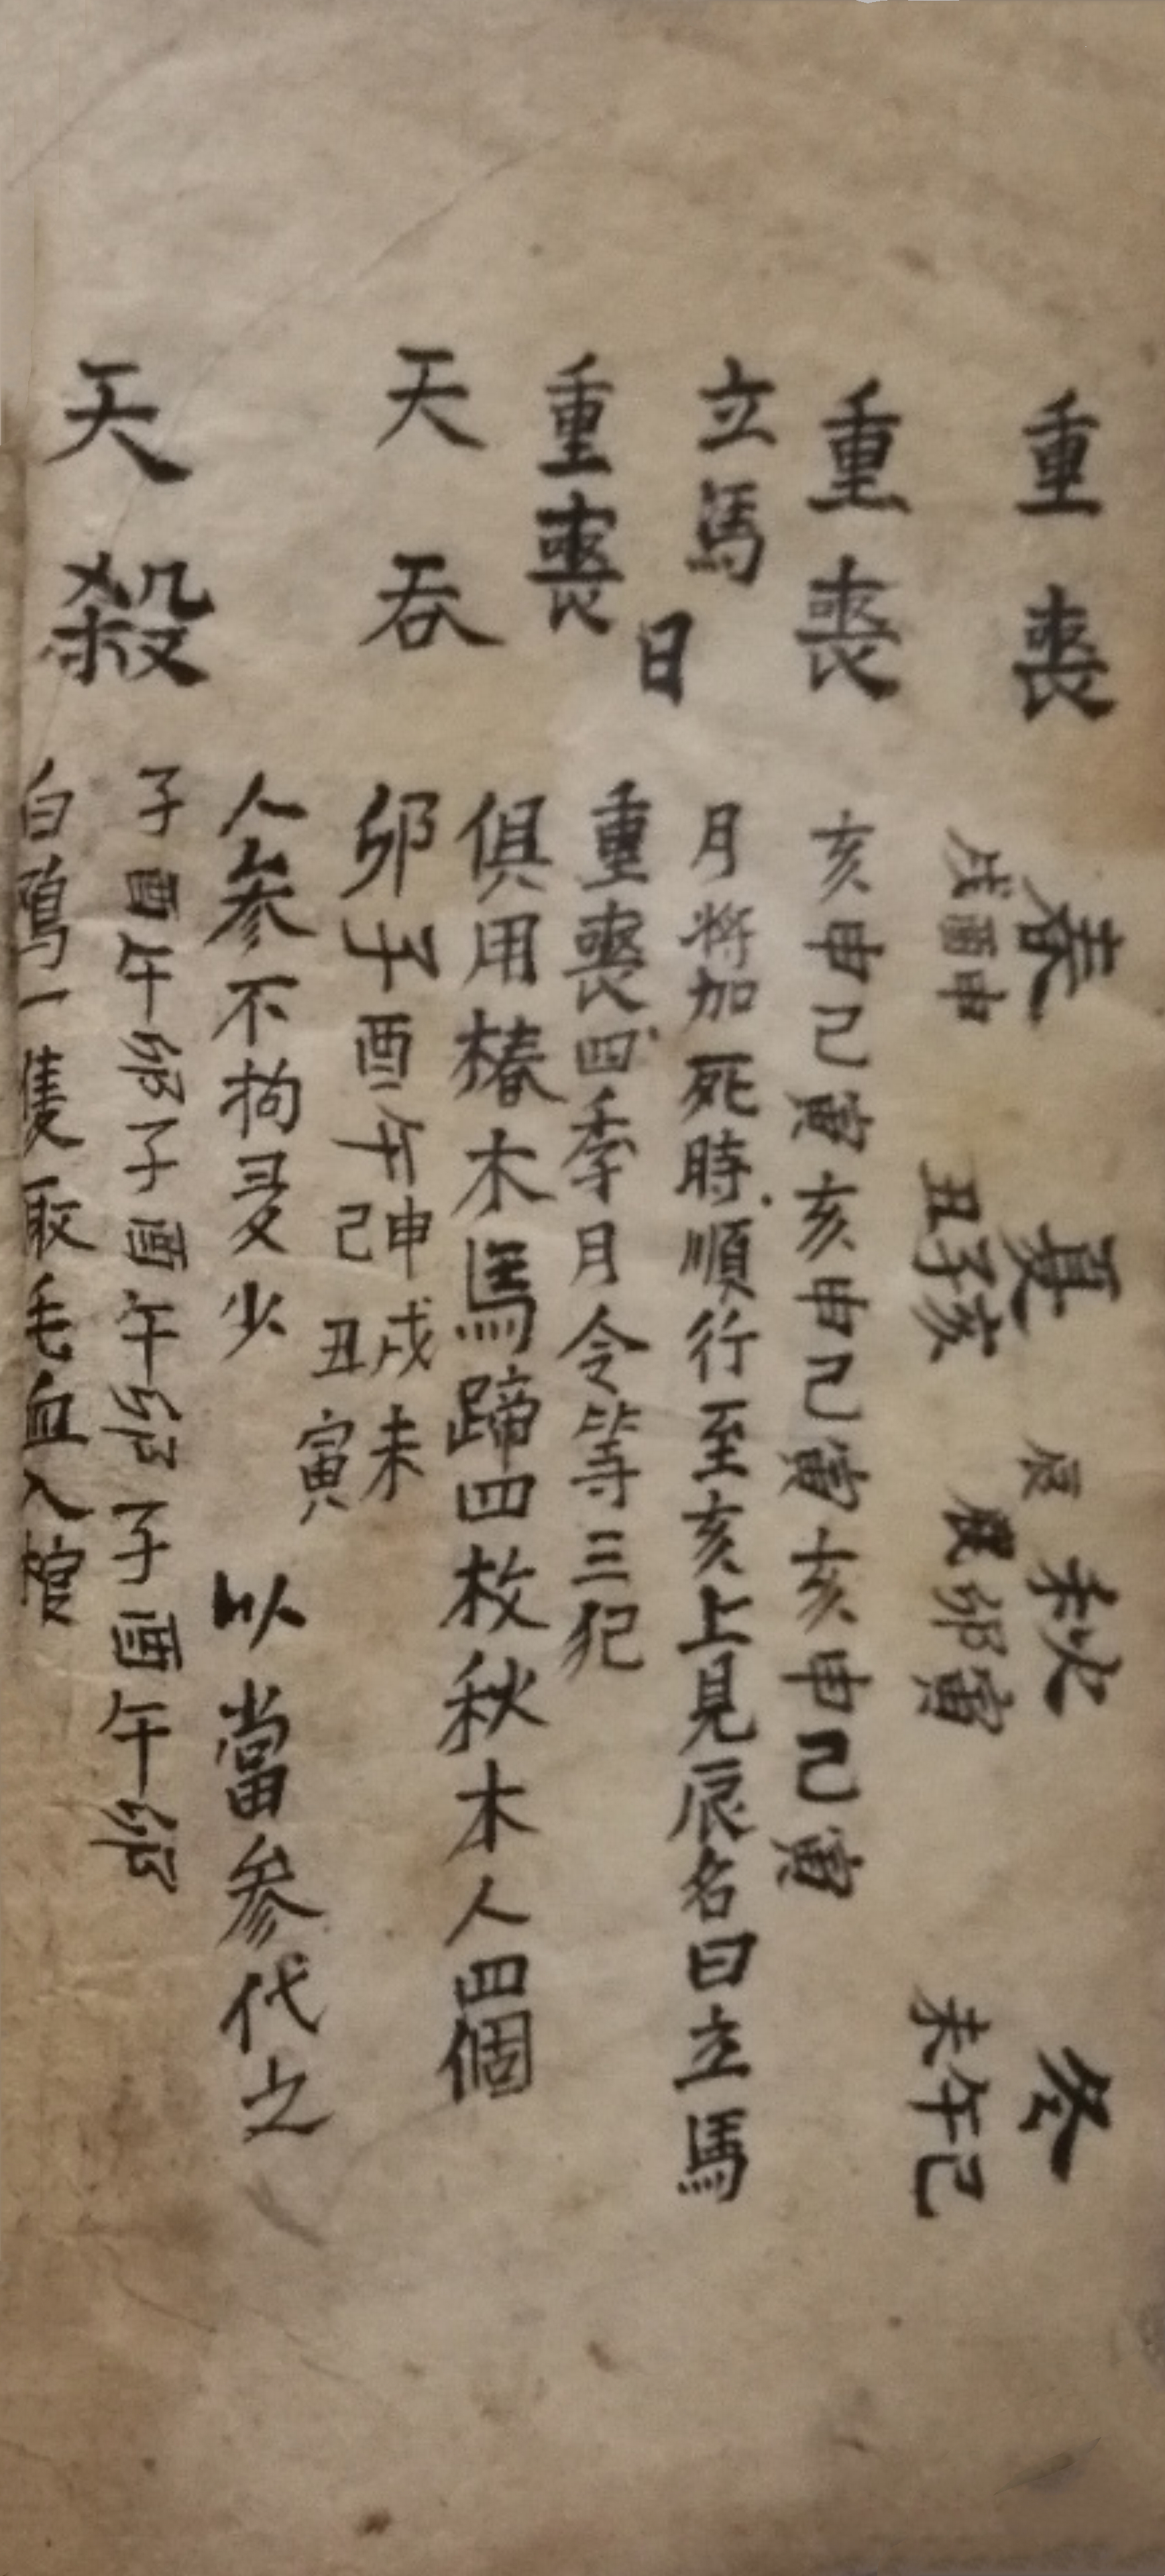 重喪
春 夏 秋 冬
戌酉申 丑子亥 辰 辰卯寅 未午巳
重喪
亥申巳寅亥申巳寅亥申巳寅
立馬
月將加死時順行至亥上見辰名曰立馬
日
重喪
重喪四季月令等三犯
俱用椿木馬蹄四枚秋木人四個
天吞
卯子酉午申戌未
巳丑寅
人參不拘多少 以當參代之
天殺
子酉午卯子酉午卯子酉午卯
白鴉一隻取毛血入棺